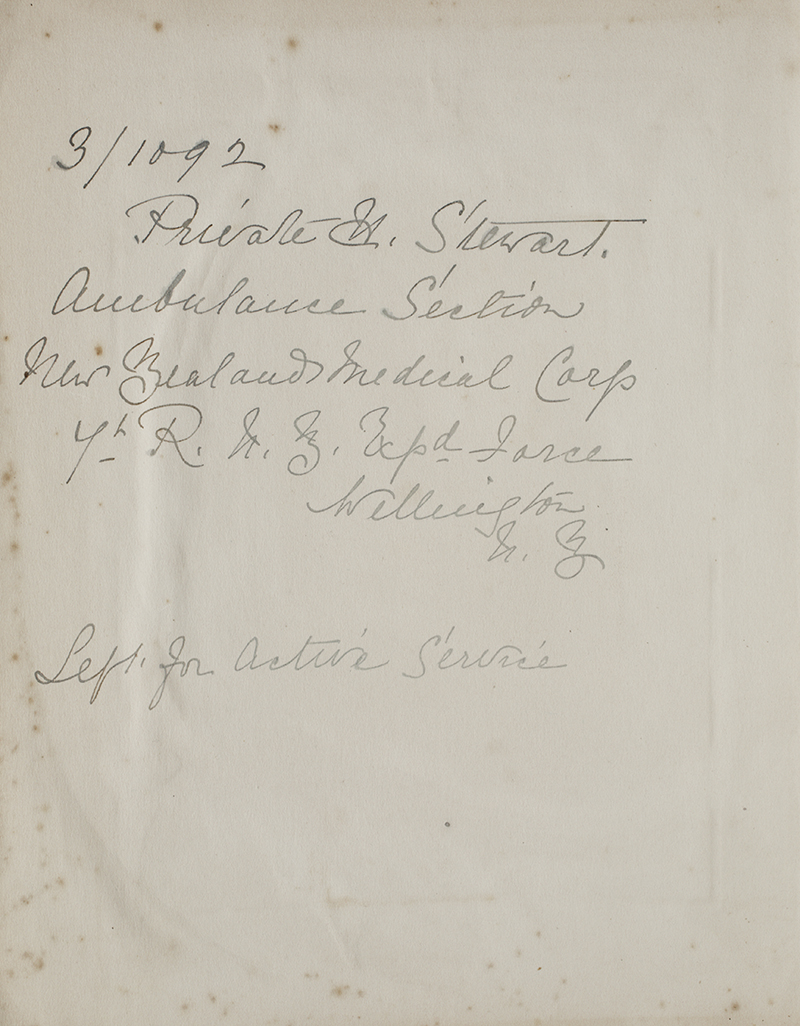 3/1092
Private H. Stewart.
Ambulance Section
New Zealand Medical Corp
7th R. N. Z. Expd Force
Wellington
N. Z
Left for Active Service